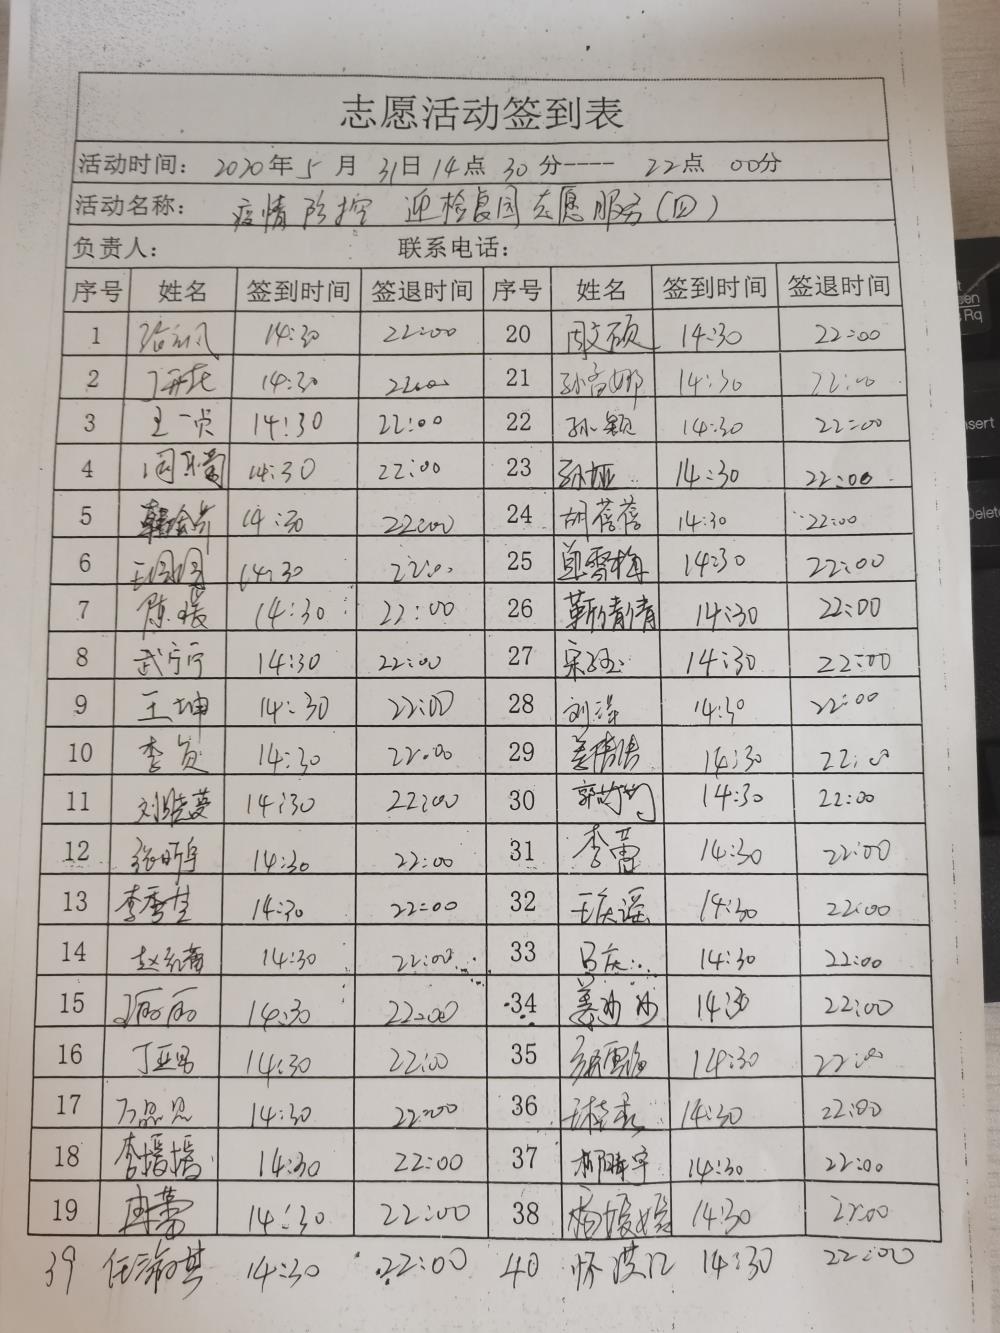 志愿活动签到表
活动时间: 2020年5月31日14点30分---- 22点00分
活动名称: 疫情防控 迎检复园志愿服务(四)
负责人: 联系电话:
序号 姓名 签到时间 签退时间 序号 姓名 签到时间 签退时间
1 14:30 22:00 20 周文硕 14:30 22:00
2 14:30 22:00 21 14:30 22:00
3 王一贞 14:30 22:00 22 孙颖 14:30 22:00
4 14:30 22:00 23 孙娅 14:30 22:00
5 14:30 22:00 24 胡蓓蓓 14:30 22:00
6 14:30 22:00 25 14:30 22:00
7 陈瑗 14:30 22:00 26 靳倩倩 14:30 22:00
8 武宁宁 14:30 22:00 27 14:30 22:00
9 王坤 14:30 22:00 28 刘萍 14:30 22:00
10 李贞 14:30 22:00 29 姜倩倩 14:30 22:00
11 刘晓蔓 14:30 22:00 30 14:30 22:00
12 张昕宇 14:30 22:00 31 李蕾 14:30 22:00
13 李秀桂 14:30 22:00 32 王庆谣 14:30 22:00
14 14:30 22:00 33 马庆 14:30 22:00
15 14:30 22:00 34 14:30 22:00
16 14:30 22:00 35 14:30 22:00
17 14:30 22:00 36 14:30 22:00
18 李搢搢 14:30 22:00 37 14:30 22:00
19 14:30 22:00 38 杨媛媛 14:30 22:00
39 14:30 22:00 40 14:30 22:00